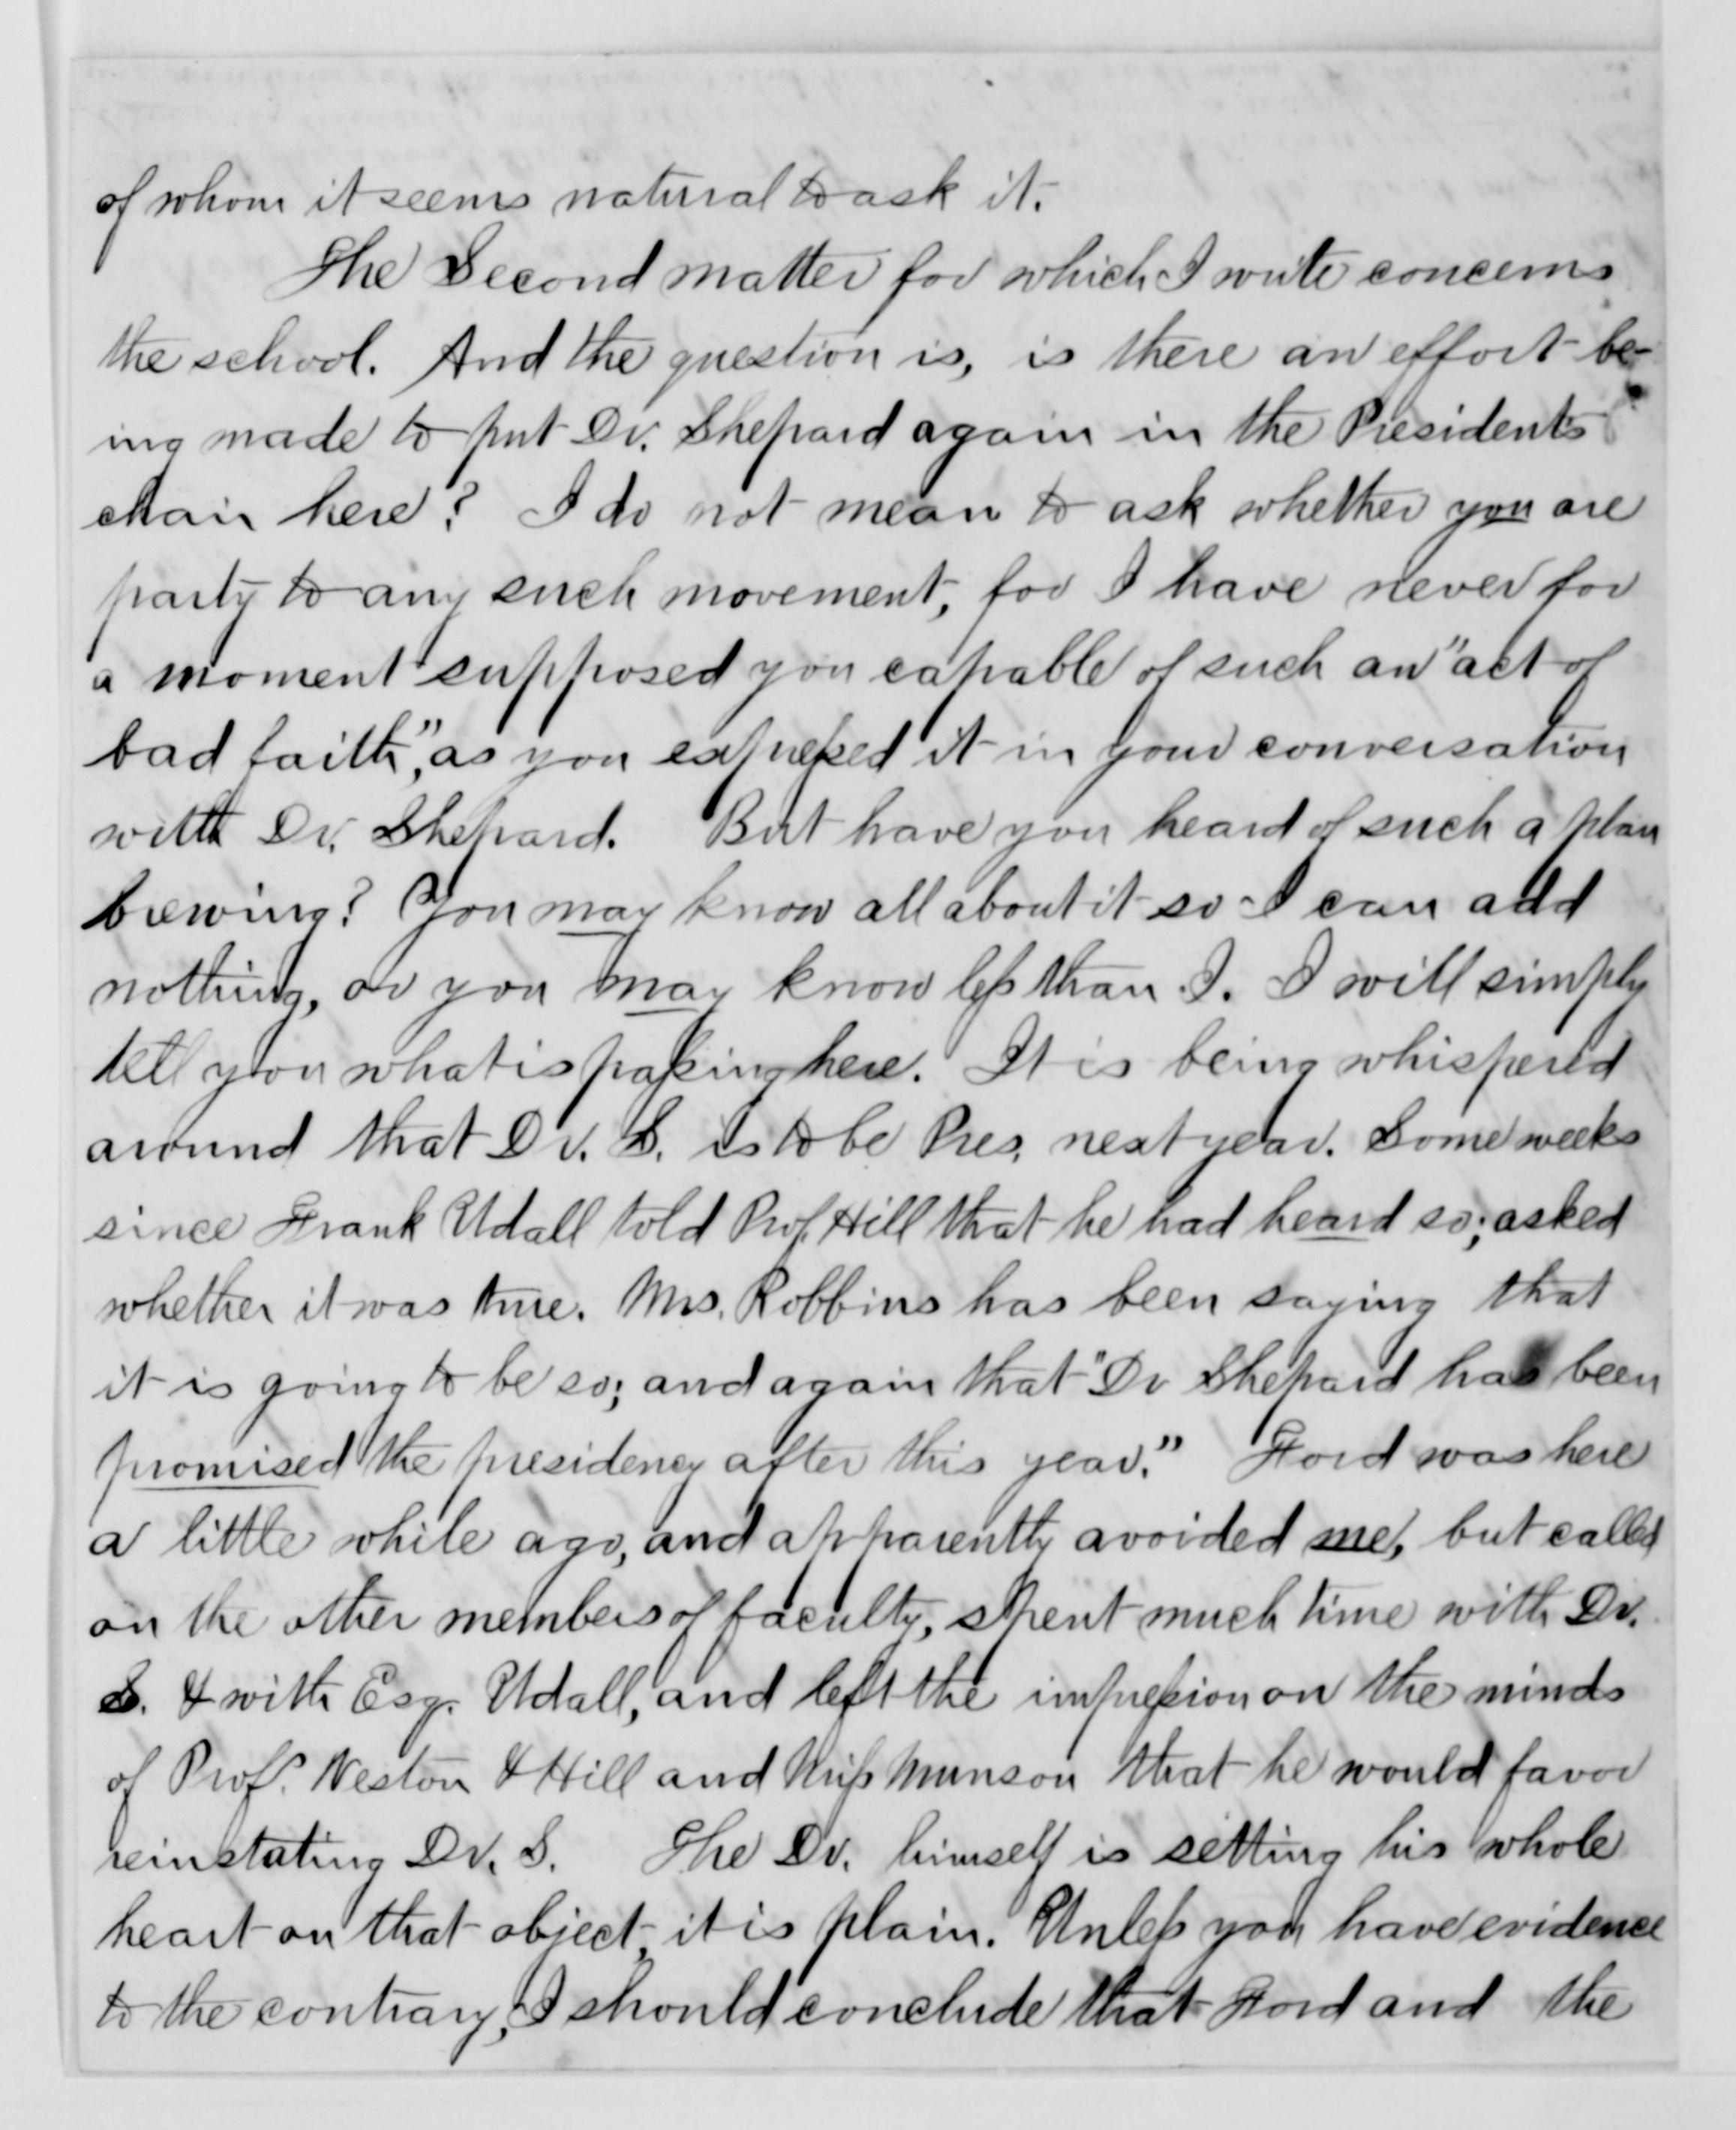 of whom it seems natural to ask it.
The Second matter for which I write concerns
the school. And the question is, is there an effort be-
ing made to put Dr. Shepard again in the Presidents
chair here? I do not mean to ask whether you are
party to any such movement, for I have never for
a moment supposed you capable of such an "act of
bad faith," as you expressed it in your conversation
with Dr. Shepard. But have you heard of such a plan
brewing? You may know all about it so I can add
nothing, or you may know less than I. I will simply
tell you what is passing here. It is being whispered
around that Dr. S. is to be Pres. next year. Some weeks
since Frank Udall told Prof. Hill that he had heard so; asked
whether it was true. Mrs. Robbins has been saying that
it is going to be so; and again that "Dr Shepard has been
promised the presidency after this year." Ford was here
a little while ago, and apparently avoided me, but called
on the other members of faculty, spent much time with Dr.
S. & with Esq. Udall, and left the impression on the minds
of Profs. Weston & Hill and Miss Munson that he would favor
reinstating Dr. S. The Dr. himself is setting his whole
heart on that object, it is plain. Unless you have evidence
to the contrary, I should conclude that Ford and the